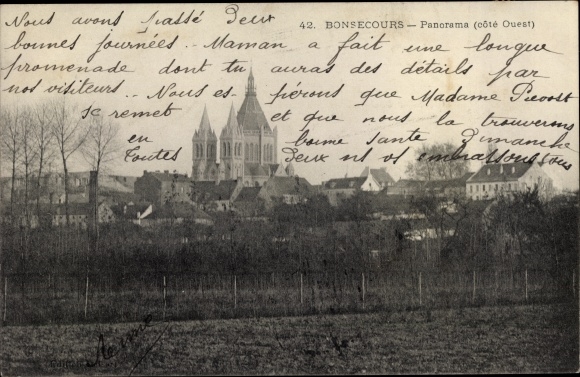 Nous avons passé Deux
42. BONSECOURS — Panorama (côté Ouest)
bonnes journées.. Maman a fait une longue
promenade dont tu auras des détails par
nos visiteurs.. Nous es-pérons que Madame Prevost
se remet et que nous la trouverons
en bonne santé Dimanche
toutes Deux ns vs embrassons tous